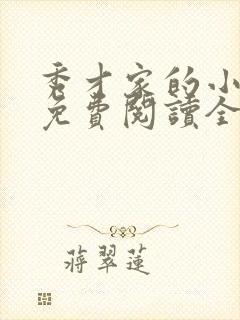 秀才家的小
免費閱讀全
蔣翠蓮